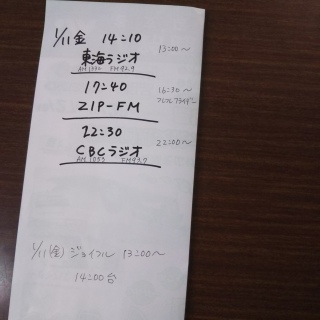 1/11 金 14:10
東海ラジオ 13:00~
AM1332 FM92.9
17:40 16:30~
ZIP-FM
22:30 22:00~
CBCラジオ
AM1053 FM93.7
1/11(金) ジョイフル 13:00~
14:00台